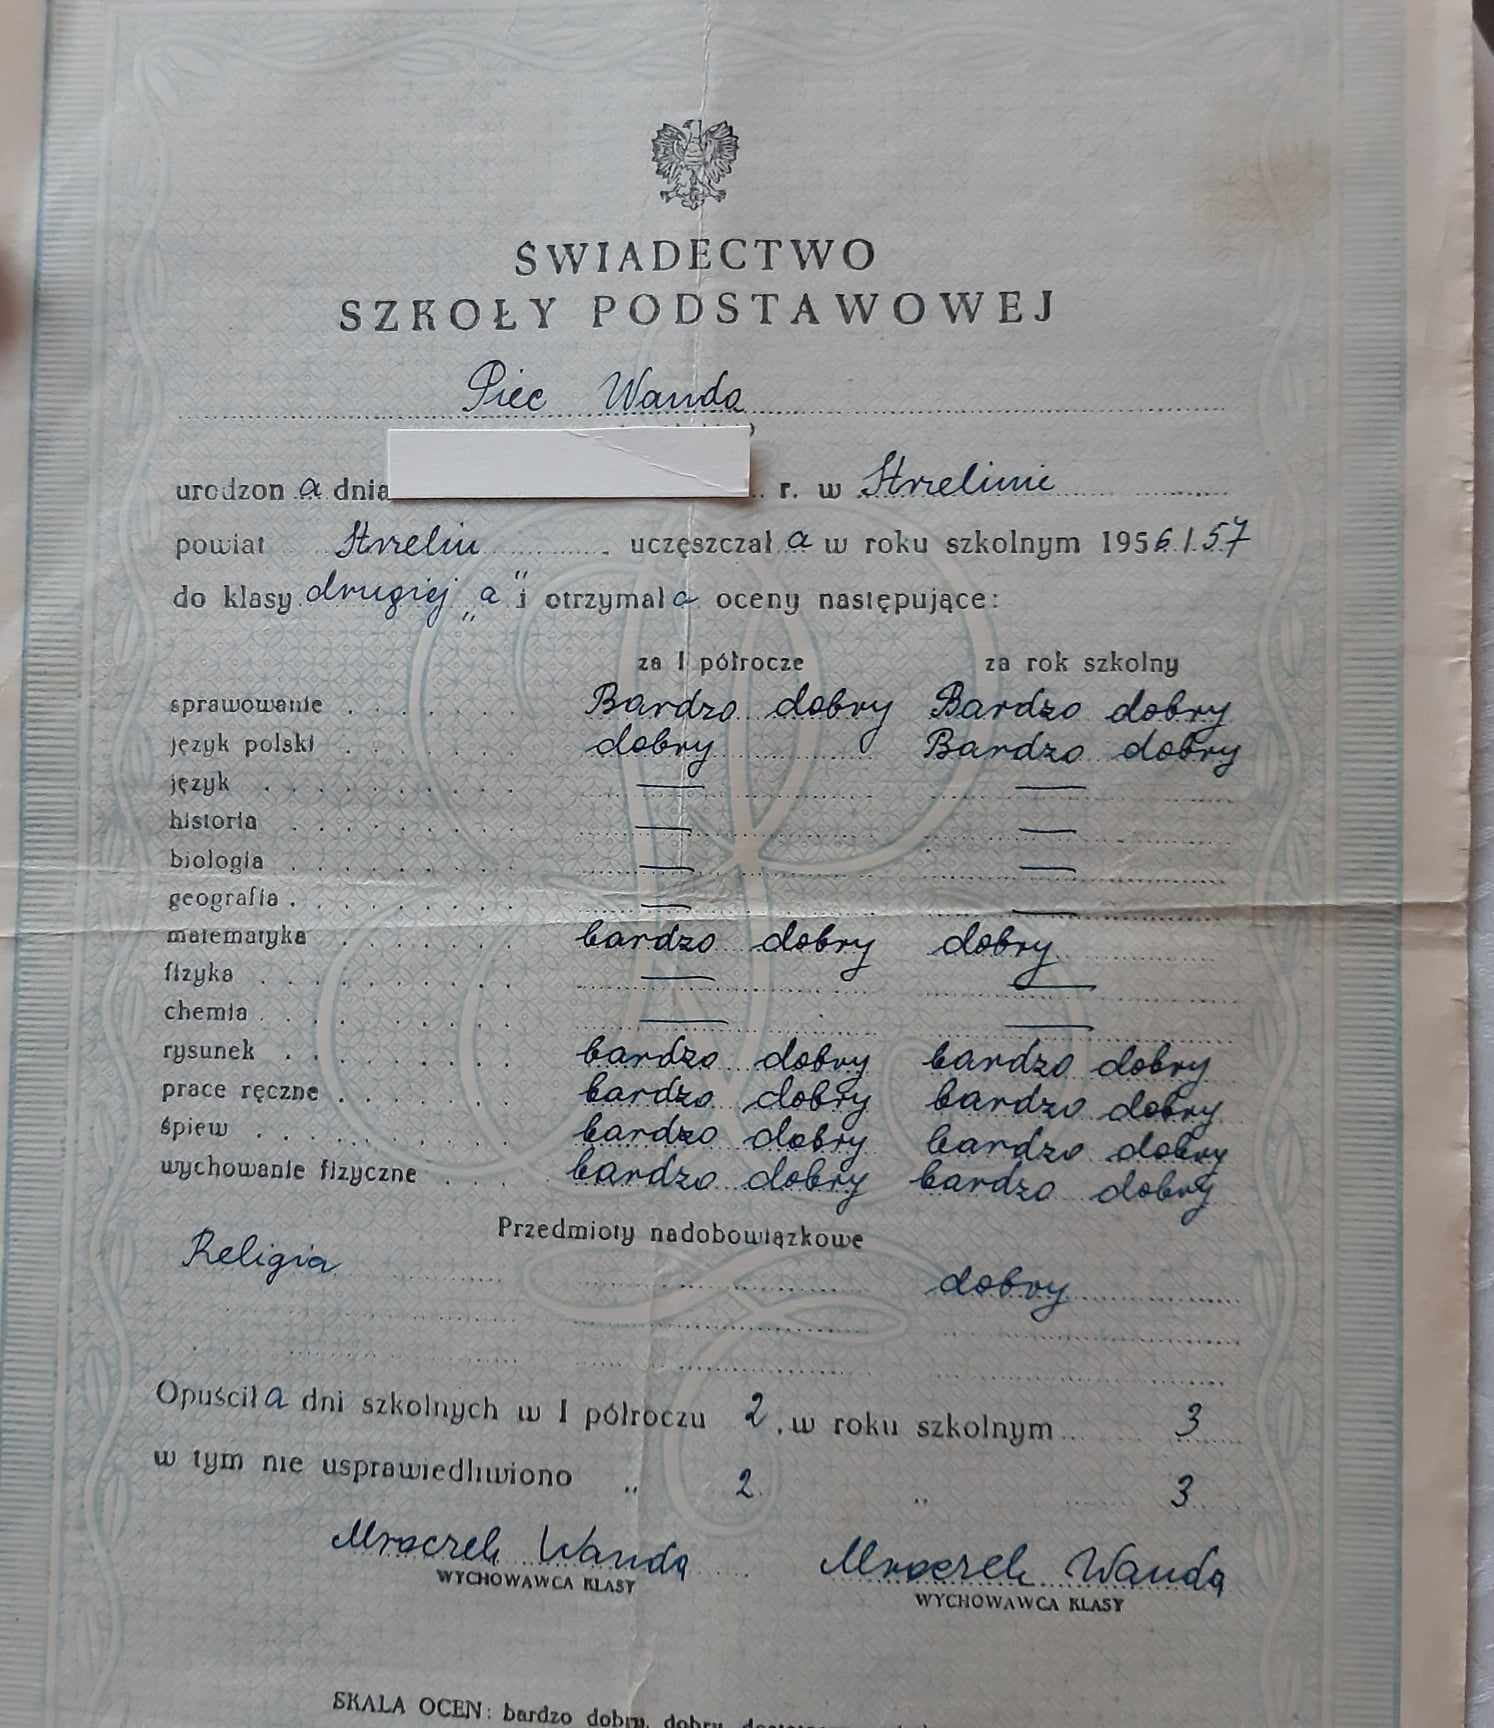 ŚWIADECTWO
SZKOŁY PODSTAWOWEJ
Piec Wanda
urodzon a dnia r. w Strzelinie
powiat Strzelin uczęszczał a w roku szkolnym 1956/57
do klasy drugiej „a" i otrzymał a oceny następujące:
za I półrocze za rok szkolny
sprawowanie Bardzo dobry Bardzo dobry
język polski dobry Bardzo dobry
język — —
historia — —
biologia — —
geografia — —
matematyka bardzo dobry dobry
fizyka — —
chemia — —
rysunek bardzo dobry bardzo dobry
prace ręczne bardzo dobry bardzo dobry
śpiew bardzo dobry bardzo dobry
wychowanie fizyczne bardzo dobry bardzo dobry
Przedmioty nadobowiązkowe
Religia dobry
Opuścił a dni szkolnych w I półroczu 2, w roku szkolnym 3
w tym nie usprawiedliwiono „ 2 „ 3
Mroczek Wanda Mroczek Wanda
WYCHOWAWCA KLASY WYCHOWAWCA KLASY
SKALA OCEN: bardzo dobry, dobry,